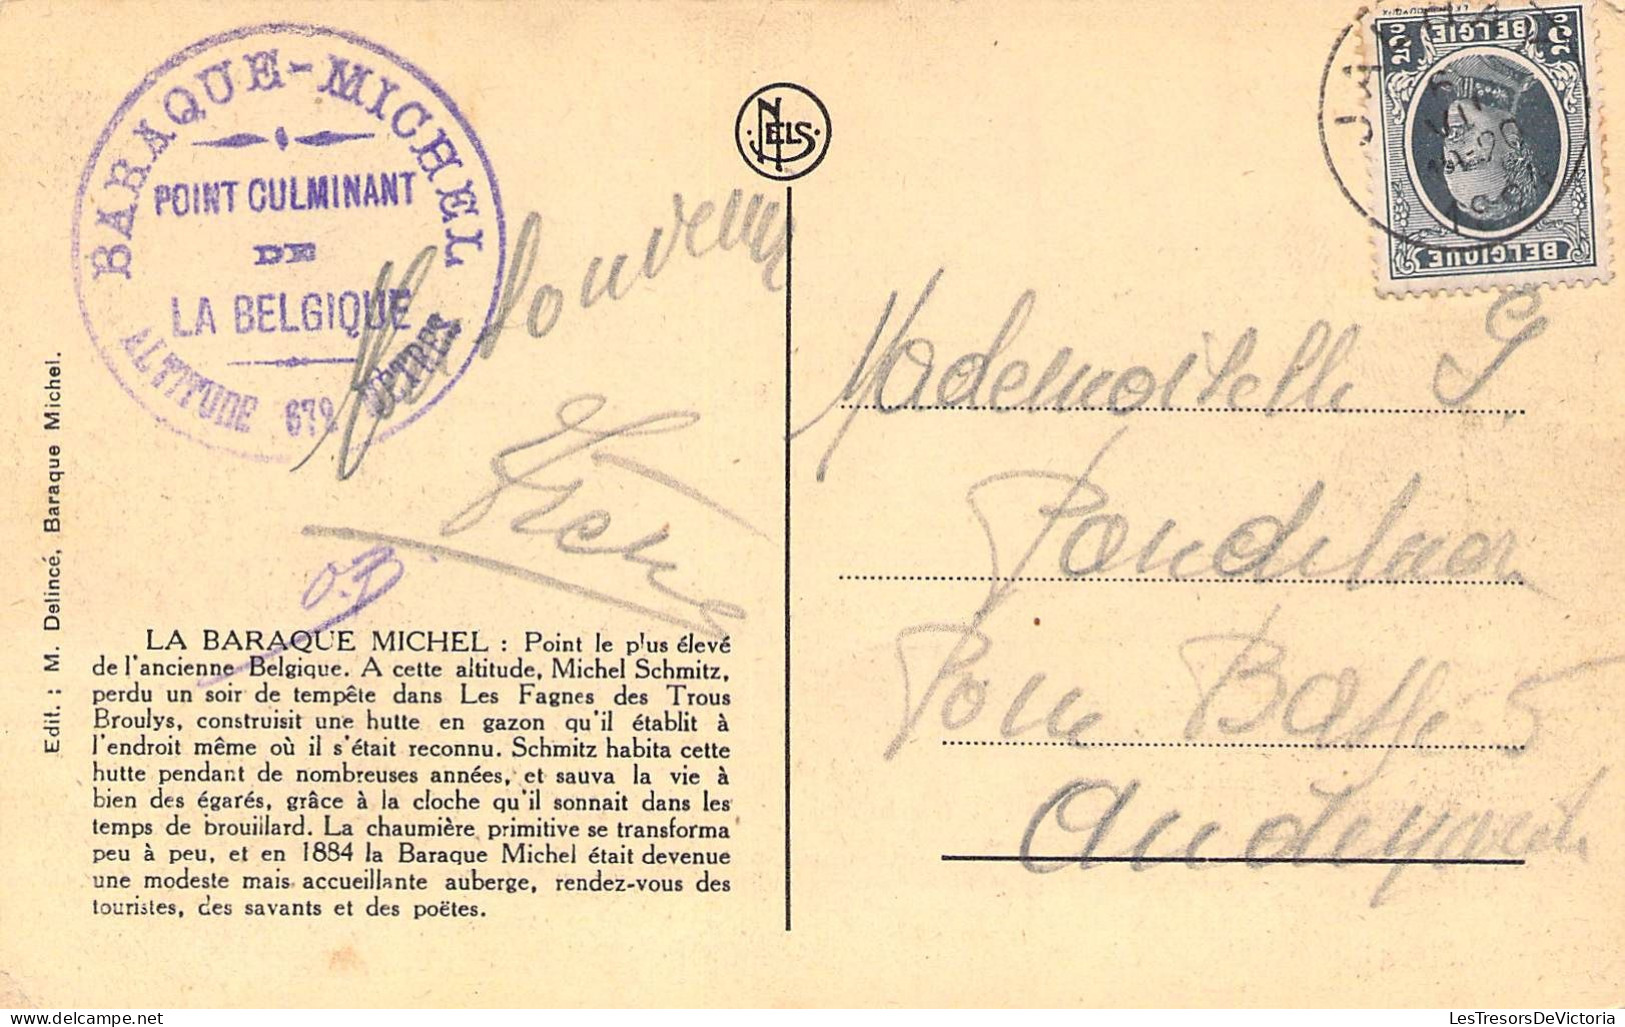 BARAQUE-MICHEL
POINT CULMINANT
DE
LA BELGIQUE
ALTITUDE 672 METRES
NELS
BELGIE
BELGIQUE
JAL
Souvenir
Mademoiselle
5
Edit. : M. Delincé, Baraque Michel.
LA BARAQUE MICHEL : Point le plus élevé
de l'ancienne Belgique. A cette altitude, Michel Schmitz,
perdu un soir de tempête dans Les Fagnes des Trous
Broulys, construisit une hutte en gazon qu'il établit à
l'endroit même où il s'était reconnu. Schmitz habita cette
hutte pendant de nombreuses années, et sauva la vie à
bien des égarés, grâce à la cloche qu'il sonnait dans les
temps de brouillard. La chaumière primitive se transforma
peu à peu, et en 1884 la Baraque Michel était devenue
une modeste mais accueillante auberge, rendez-vous des
touristes, des savants et des poëtes.
LesTresorsDeVictoria.com